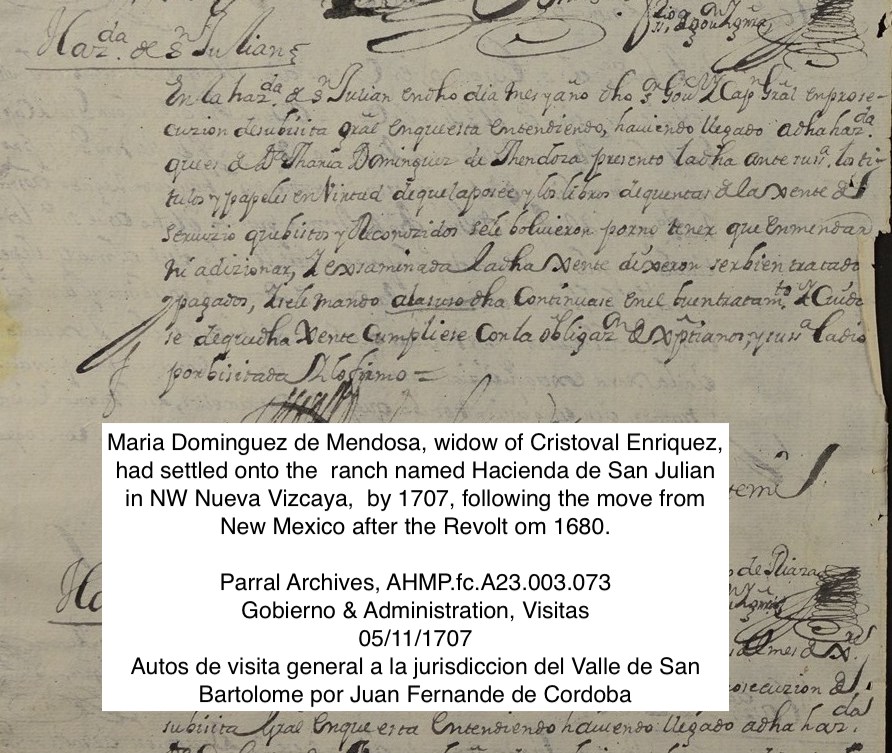 Haz.da de Sn Julian
En la haz.da de Sn Julian en dho dia mes y año dho Sr Govor y Capn Gral en prose-
cuzion de su bisita gral en que esta entendiendo, haviendo llegado a dha haz.da
que es de Da Maria Dominguez de Mendoza presento la dha ante su ssa. los ti-
tulos y papeles en Virtud de que la posee y los libros de quentas de la xente de
serbizio que bistos y Reconozidos se le bolvieron por no tener que enmendar
ni adizionar, y exsaminada la dha xente dixeron ser bien tratados
y pagados, y se le mando a la suso dha Continuase en el buen tratamto y Cuida
se de que dha xente Cumpliese Con la obligazn de Xptianos, y su ssa la dio
por bisitada y lo firmo =
Maria Dominguez de Mendosa, widow of Cristoval Enriquez,
had settled onto the ranch named Hacienda de San Julian
in NW Nueva Vizcaya, by 1707, following the move from
New Mexico after the Revolt om 1680.
Parral Archives, AHMP.fc.A23.003.073
Gobierno & Administration, Visitas
05/11/1707
Autos de visita general a la jurisdiccion del Valle de San
Bartolome por Juan Fernande de Cordoba
su bisita Gral en que esta Entendiendo haviendo llegado a dha haz.da